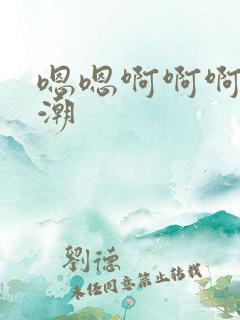 嗯嗯啊啊啊
潮
劉德
未经同意禁止转载